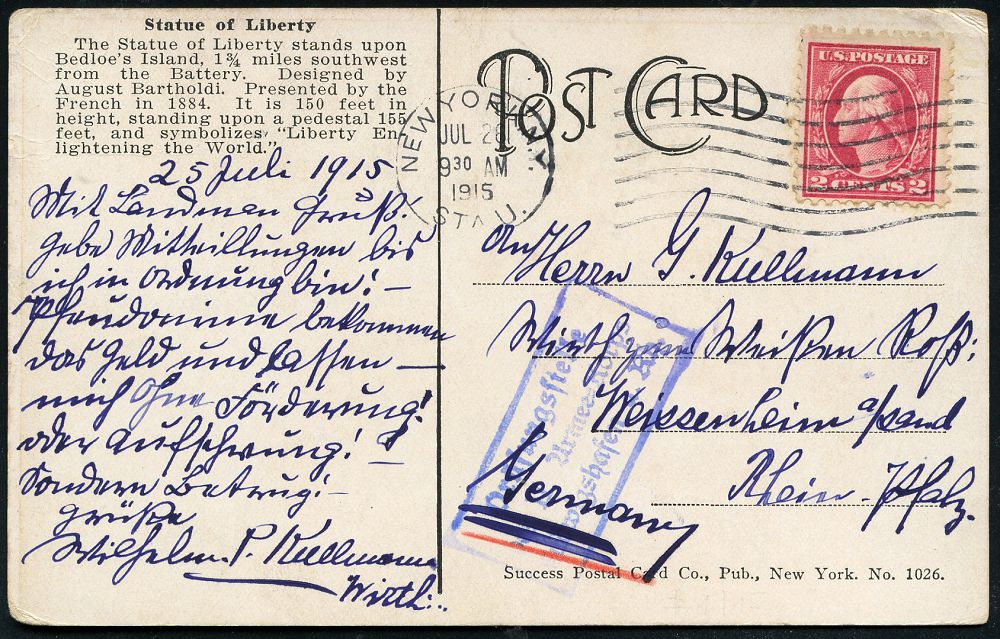 Statue of Liberty
The Statue of Liberty stands upon
Bedloe's Island, 1¾ miles southwest
from the Battery. Designed by
August Bartholdi. Presented by the
French in 1884. It is 150 feet in
height, standing upon a pedestal 155
feet, and symbolizes "Liberty En-
lightening the World."
25 Juli 1915
Mit Landman Gruß!
gebe Mitteillungen bis
ich in Ordnung bin! –
bekommen
das Geld und lassen –
mich Ohne Förderung!
oder Aufschwung! –
Sondern Betrug! –
Grüße
Wilhelm P. Kullmann
Wirth.
POST CARD
NEW YORK, N.Y.
JUL 28
9 30 AM
1915
STA U.
U.S. POSTAGE
2 CENTS 2
An Herrn G. Kullmann
Wirth zum Weißen Roß:
Weissenheim a/sand
Rhein-Pfalz.
Germany
Armeekorps
Success Postal Card Co., Pub., New York. No. 1026.